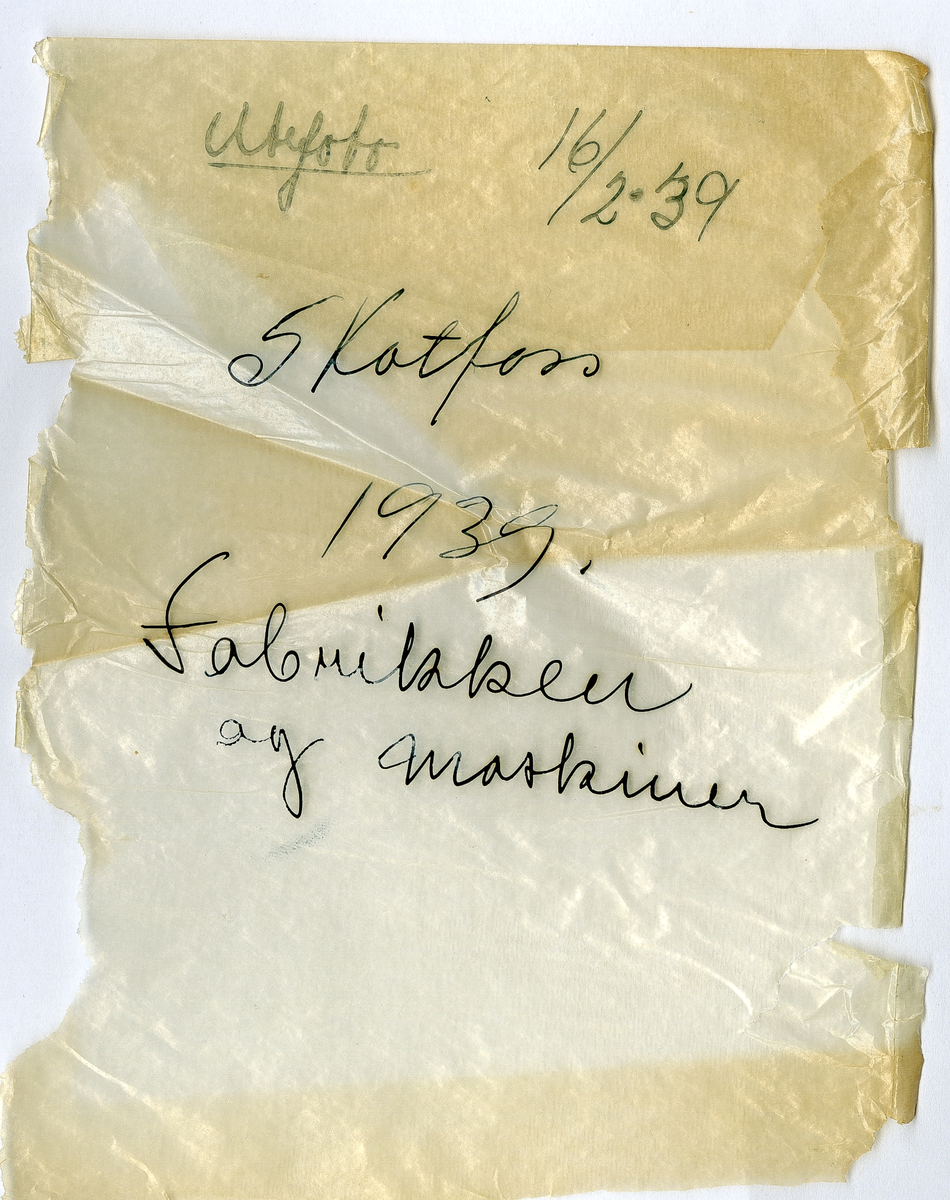 Utefoto 16/2-39
Skotfoss
1939.
Fabrikken
og maskiner